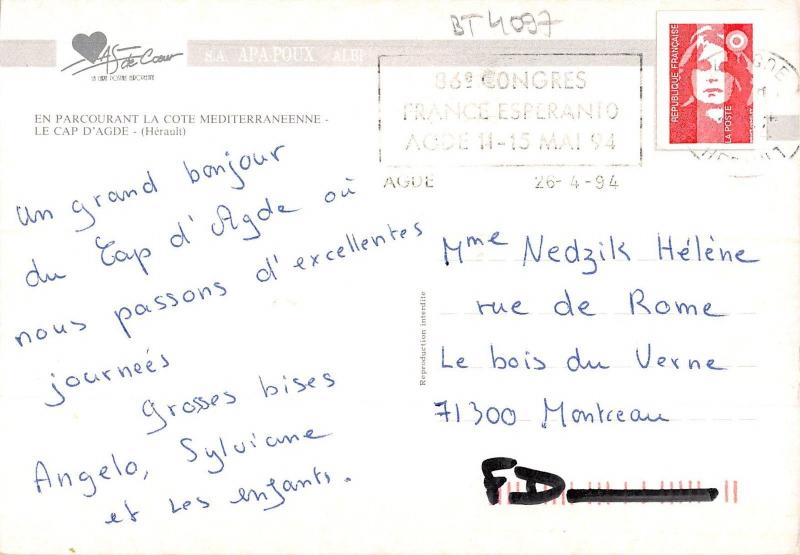 BT 4097
As de Cœur
LA CARTE POSTALE EUROPEENNE
S.A. APA-POUX ALBI
EN PARCOURANT LA COTE MEDITERRANEENNE -
LE CAP D'AGDE - (Hérault)
86e CONGRES
FRANCE ESPERANTO
AGDE 11-15 MAI 94
AGDE 26-4-94
REPUBLIQUE FRANÇAISE
LA POSTE
Un grand bonjour
du Cap d'Agde où
nous passons d'excellentes
journeés
Grosses bises
Angelo, Sylviane
et les enfants.
Reproduction interdite
Mme Nedzik Hélène
rue de Rome
Le bois du Verne
71300 Montceau
FD